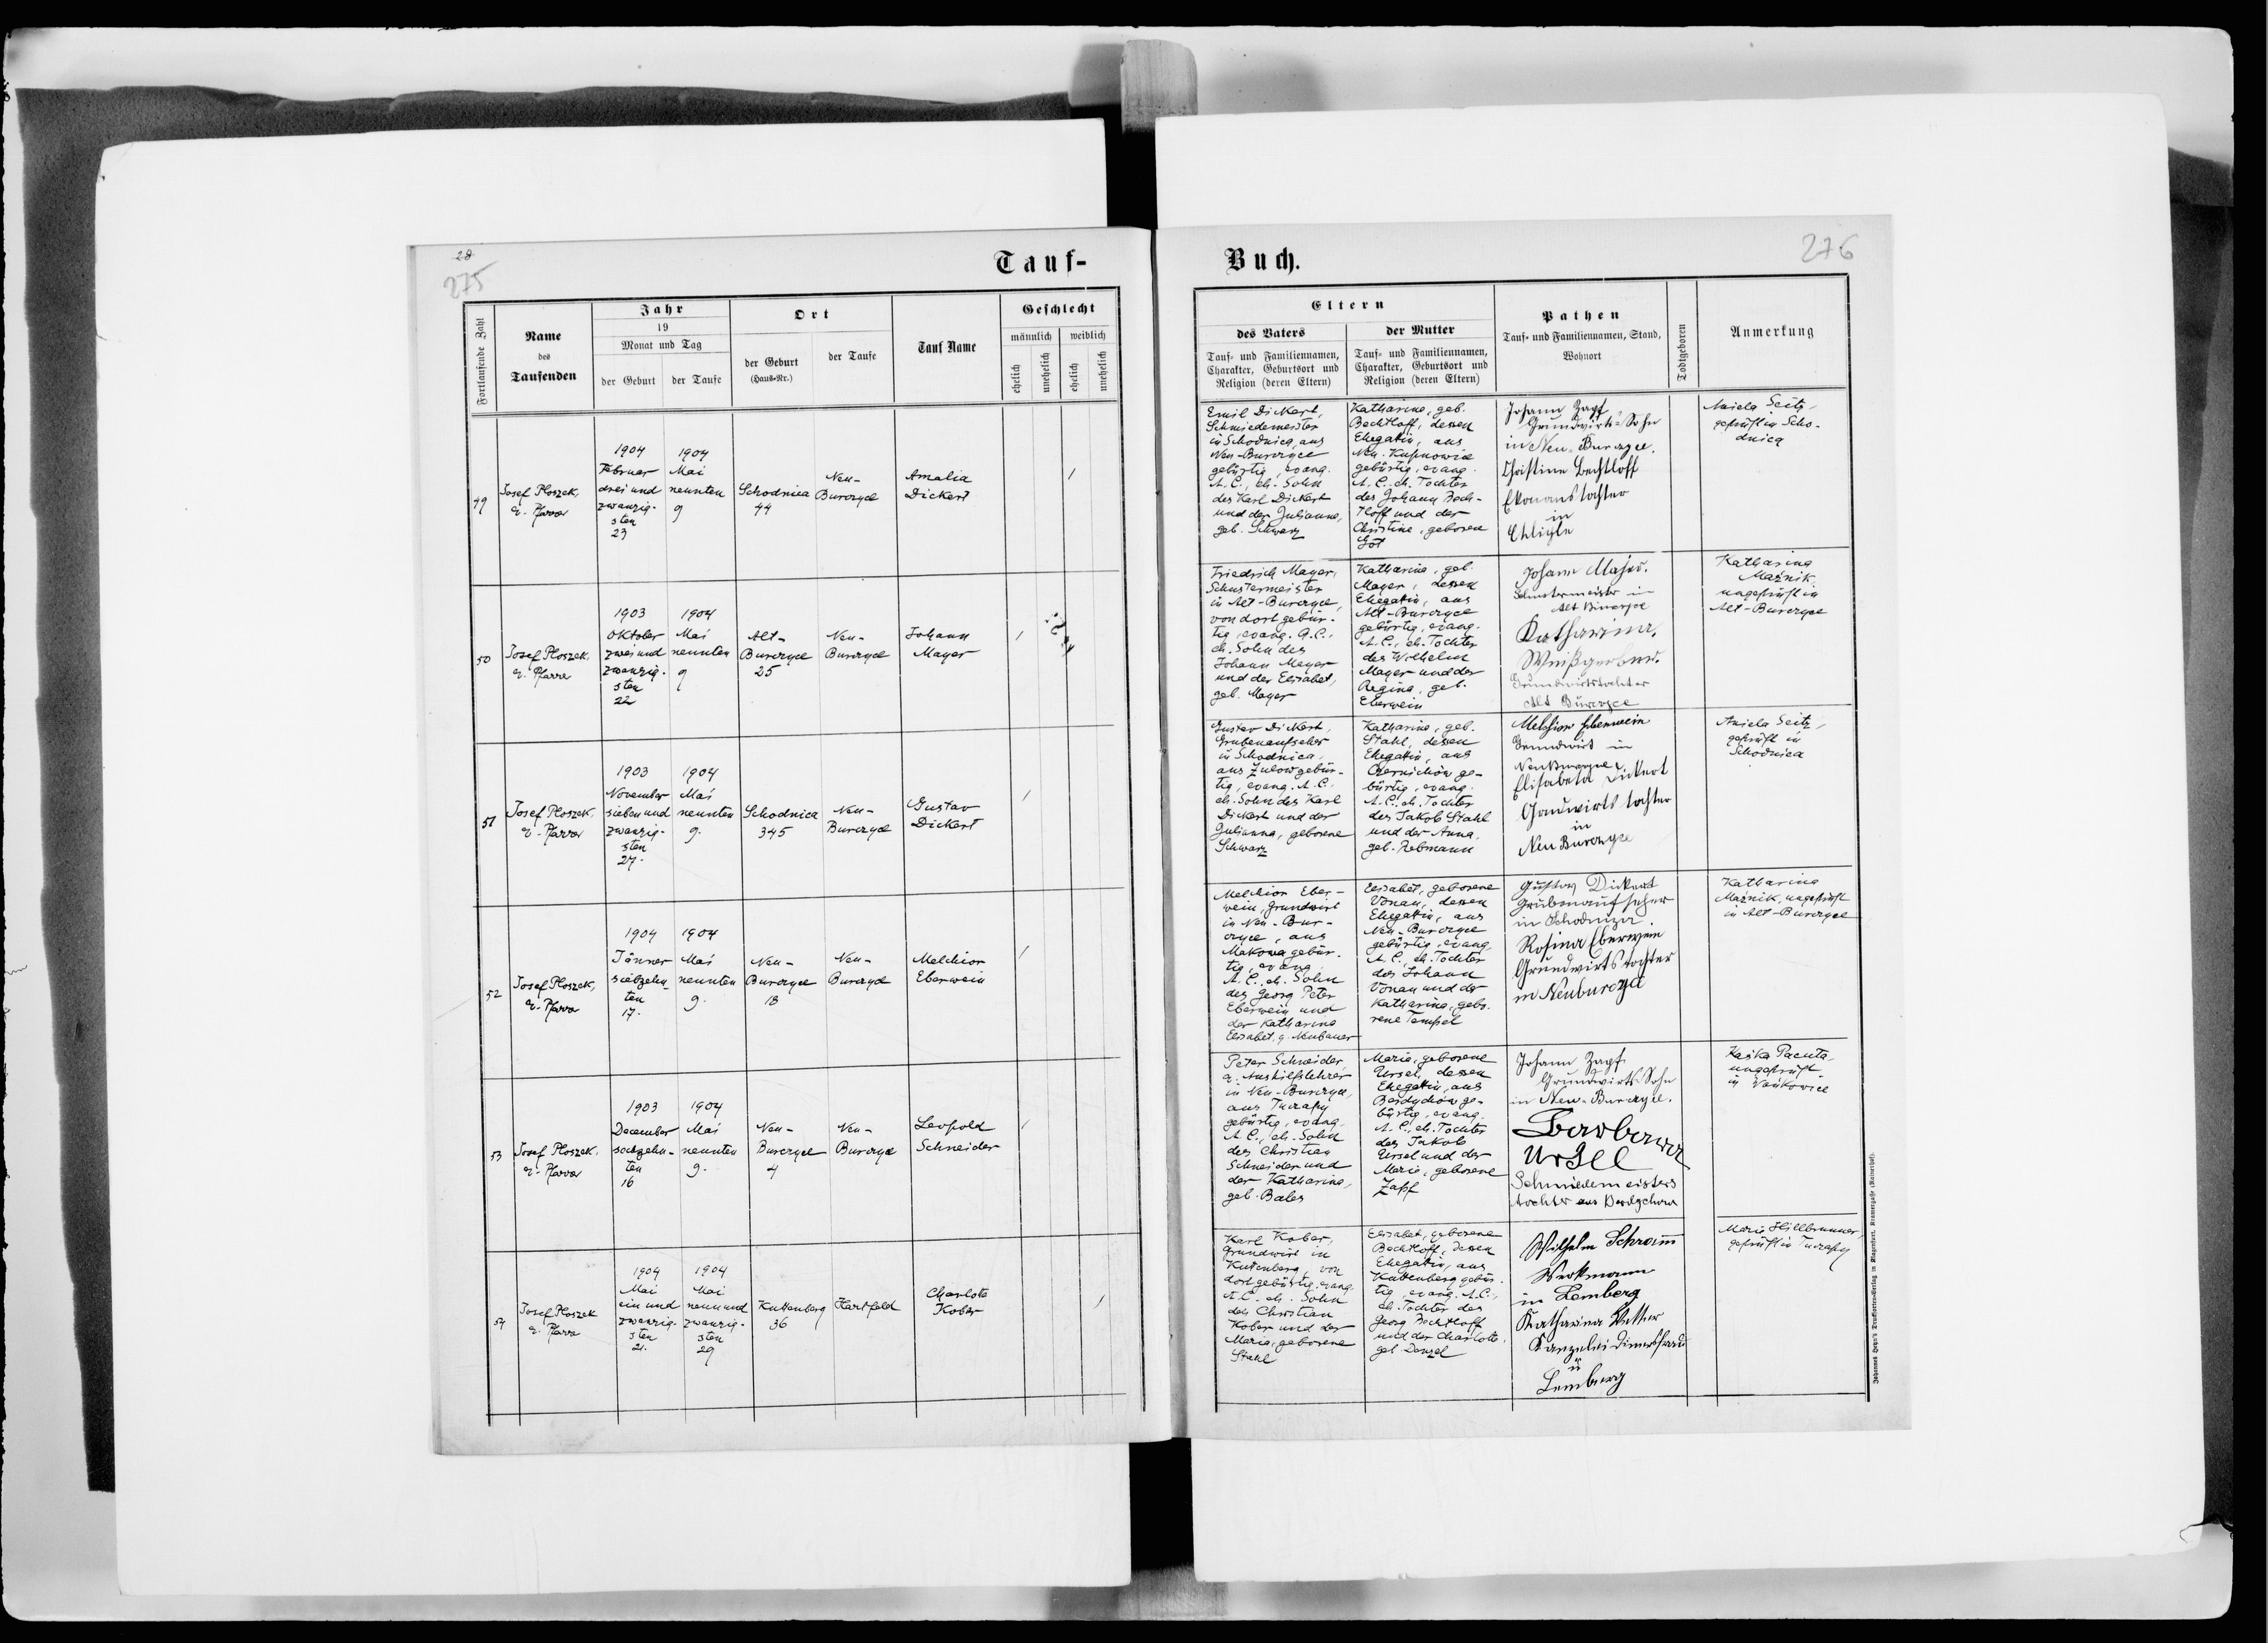 28
275
Tauf-
Fortlaufende Zahl
Name
des
Taufenden
Jahr
19
Monat und Tag
der Geburt
der Taufe
Ort
der Geburt
(Haus-Nr.)
der Taufe
Tauf Name
Geschlecht
männlich
weiblich
ehelich
unehelich
ehelich
unehelich
49
Josef Ploszek,
e. Pfarrer
1904
Februar
drei und
zwanzig-
sten
23
1904
Mai
neunten
9
Schodnica
44
Neu-
Burczyce
Amalia
Dickert
/
50
Josef Ploszek,
e. Pfarrer
1903
Oktober
zwei und
zwanzig-
sten
22
1904
Mai
neunten
9
Alt-
Burczyce
25
Neu-
Burczyce
Johann
Mayer
/
51
Josef Ploszek,
e. Pfarrer
1903
November
sieben und
zwanzig-
sten
27.
1904
Mai
neunten
9.
Schodnica
345
Neu-
Burczyce
Gustav
Dickert
/
52
Josef Ploszek,
e. Pfarrer
1904
Jänner
siebzehn-
ten
17.
1904
Mai
neunten
9.
Neu-
Burczyce
18
Neu-
Burczyce
Melchior
Eberwein
/
53
Josef Ploszek,
e. Pfarrer
1903
December
sechzehn-
ten
16
1904
Mai
neunten
9.
Neu-
Burczyce
4
Neu-
Burczyce
Leopold
Schneider
/
54
Josef Ploszek
e. Pfarrer
1904
Mai
ein und
zwanzig-
sten
21.
1904
Mai
neun und
zwanzig-
sten
29
Kuttenberg
36
Hartfeld
Charlote
Kober
/
Buch.
276
Eltern
des Vaters
Tauf- und Familiennamen,
Charakter, Geburtsort und
Religion (deren Eltern)
der Mutter
Tauf- und Familiennamen,
Charakter, Geburtsort und
Religion (deren Eltern)
Pathen
Tauf- und Familiennamen, Stand,
Wohnort
Todtgeboren
Anmerkung
Emil Dickert,
Schmiedemeister
in Schodnica, aus
Neu-Burczyce
gebürtig, evang.
A. C., eh. Sohn
des Karl Dickert
und der Julianne,
geb. Schwarz
Katharina, geb.
Bechtloff, dessen
Ehegattin, aus
Neu-Kupnowice
gebürtig, evang.
A. C. eh. Tochter
des Johann Bech-
tloff und der
Christine, geboren
Johann Zapf
Grundwirts-Sohn
in Neu-Burczyce.
Christine Bechtloff
tochter
in
Aniela Seitz,
geprüft in Scho-
dnica
Friedrich Mayer,
Schustermeister
in Alt-Burczyce,
von dort gebür-
tig, evang. A. C.,
eh. Sohn des
Johann Mayer
und der Elisabet,
geb. Mayer
Katharina, geb.
Mayer, dessen
Ehegattin, aus
Alt-Burczyce
gebürtig, evang.
A. C., eh. Tochter
des Wilhelm
Mayer und der
Regina, geb.
Eberwein
Johann Majer.
Schustermeister in
Alt Burczyce
Katharina.
Weißgerber.
Grundwirtstochter
Alt Burczyce
Katharina
Maźnik,
ungeprüft in
Alt-Burczyce
Gustav Dickert,
Grubenaufseher
in Schodnica,
aus Zulow gebür-
tig, evang. A. C.
eh. Sohn des Karl
Dickert und der
Julianna, geborene
Schwarz
Katharina, geb.
Stahl, dessen
Ehegattin, aus
Czernichów ge-
bürtig, evang.
A. C. eh. Tochter
des Jakob Stahl
und der Anna,
geb. Rebmann
Melchior Eberwein
Grundwirt in
Neu Burczyce
Elisabeta Dickert
tochter
in
Neu Burczyce
Aniela Seitz,
geprüft in
Schodnica
Melchior Eber-
wein, Grundwirt
in Neu-Bur-
czyce, aus
Makowa gebür-
tig, evang.
A. C., eh. Sohn
des Georg Peter
Eberwein und
der Katharina
Elisabet, g. Neubauer
Elisabet, geborene
Vonau, dessen
Ehegattin, aus
Neu-Burczyce
gebürtig, evang.
A. C., eh. Tochter
des Johann
Vonau und der
Katharina, gebo-
rene Tempel
Gustav Dickert
Grubenaufseher
in Schodniza.
Rosina Eberwein
Grundwirts tochter
in Neuburczyce
Katharina
Maźnik, ungeprüft
in Alt-Burczyce
Peter Schneider
e. Aushilfslehrer
in Neu-Burczyce,
aus Turzepy
gebürtig, evang.
A. C., eh. Sohn
des Christian
Schneider und
der Katharina,
geb. Bales
Maria, geborene
Ursel, dessen
Ehegattin, aus
Berdychów ge-
bürtig, evang.
A. C., eh. Tochter
des Jakob
Ursel und der
Maria, geborene
Zapf
Johann Zapf
Grundwirts Sohn
in Neu-Burczyce.
Barbara
Ursel
Schmiedemeisters
tochter aus
Kaśka Pacuta,
ungeprüft
in
Karl Kober,
Grundwirt in
Kuttenberg, von
dort gebürtig, evang.
A. C. eh. Sohn
des Christian
Kober und der
Maria, geborene
Stahl
Elisabet, geborene
Bechtloff, dessen
Ehegattin, aus
Kuttenberg gebür-
tig, evang. A. C.,
eh. Tochter des
Georg Bechtloff
und der Charlote,
geb. Denzel
Wilhelm Schramm
Werkmann
in Lemberg
Katharina Vetter
Kanzelei dienersfrau
in
Lemberg
Maria Hillbrunner
geprüft in